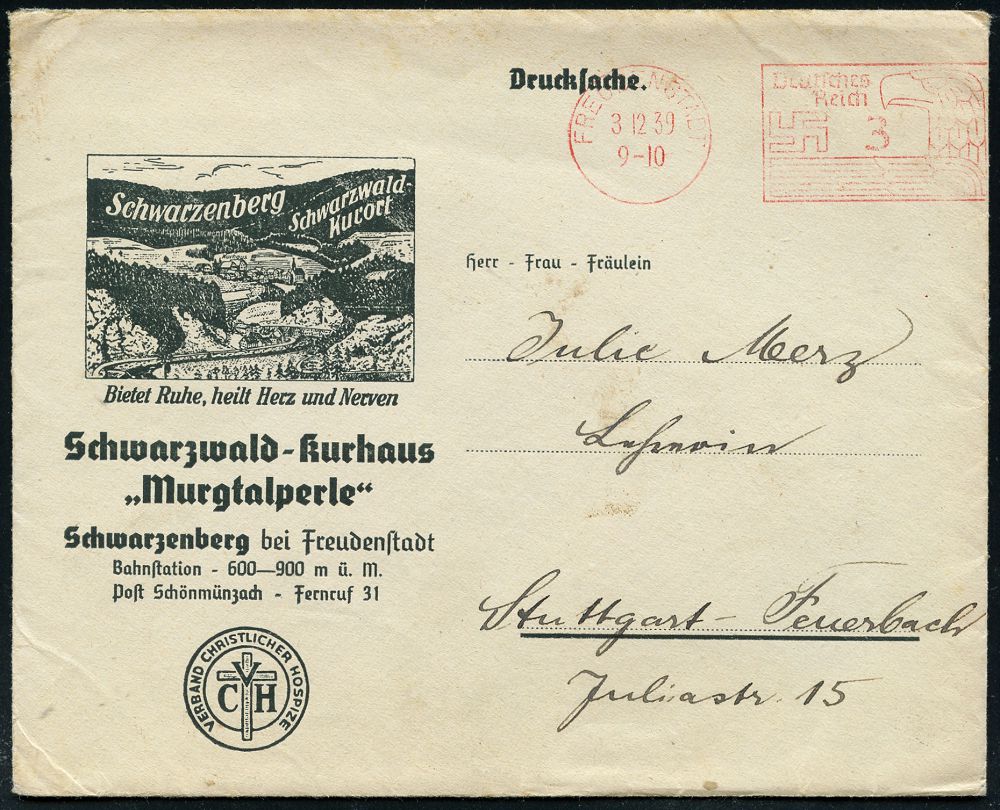 Drucksache.
FREUDENSTADT
3 12 39
9-10
Deutsches
Reich
3
Schwarzenberg
Schwarzwald-
Kurort
Bietet Ruhe, heilt Herz und Nerven
Schwarzwald-Kurhaus
„Murgtalperle“
Schwarzenberg bei Freudenstadt
Bahnstation - 600—900 m ü. M.
Post Schönmünzach - Fernruf 31
VERBAND CHRISTLICHER HOSPIZE
C V H
Herr - Frau - Fräulein
Julie Merz
Lehrerin
Stuttgart - Feuerbach
Juliastr. 15